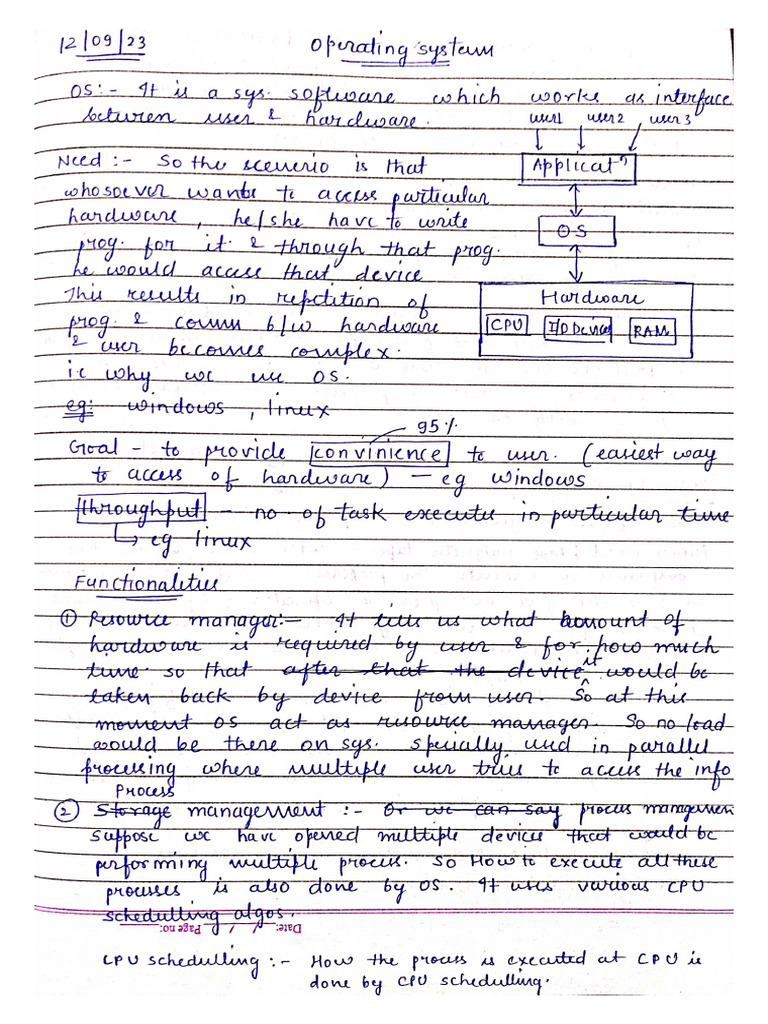 12/09/23
Operating system
OS:- It is a sys. software which works as interface
between user & hardware.
user1 user2 user3
Applicatn
OS
Hardware
CPU I/O Devices RAM
Need :- So the scenerio is that
whosoever wants to access particular
hardware, he/she have to write
prog. for it. & through that prog.
he would access that device
This results in reptition of
prog. & comm b/w hardware
& user becomes complex.
ie why we use OS.
eg: windows, linux
95%
Goal - to provide convinience to user. (easiest way
to access of hardware) - eg windows
throughput - no of task executes in particular time
↳ eg linux
Functionalities
① Resource manager:- It tells us what amount of
hardware is required by user & for how much
time so that after that the device it would be
taken back by device from user. So at this
moment OS act as resource manager. So no load
would be there on sys. specially used in parallel
processing where multiple user tries to access the info
Process
② Storage management :- Or we can say process managemen
Suppose we have opened multiple devices that would be
performing multiple process. So How to execute all these
processes is also done by OS. It uses various CPU
schedulling algos.
Date: / / Page no:
CPU schedulling :- How the process is executed at CPU is
done by CPU schedulling.